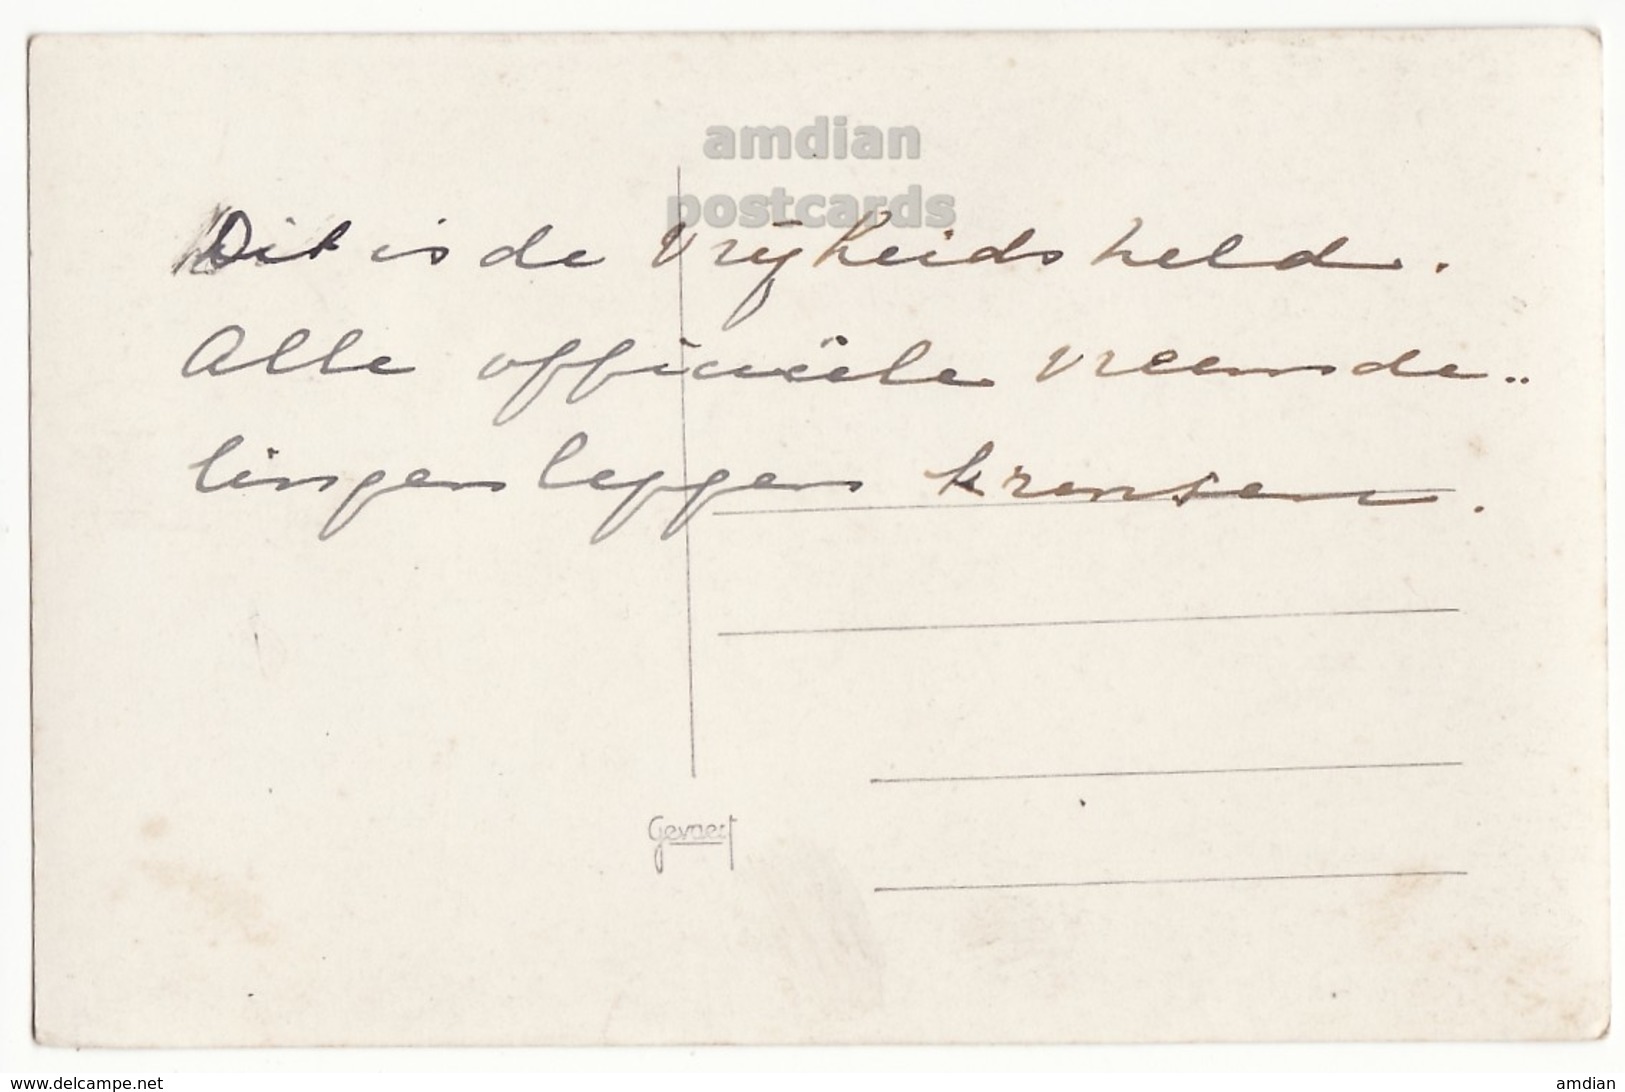 amdian
postcards
Dit is de Vrijheidsheld.
Alle officiëele vreemde..
lingen leggen kransen.
Gevaert
www.delcampe.net
amdian